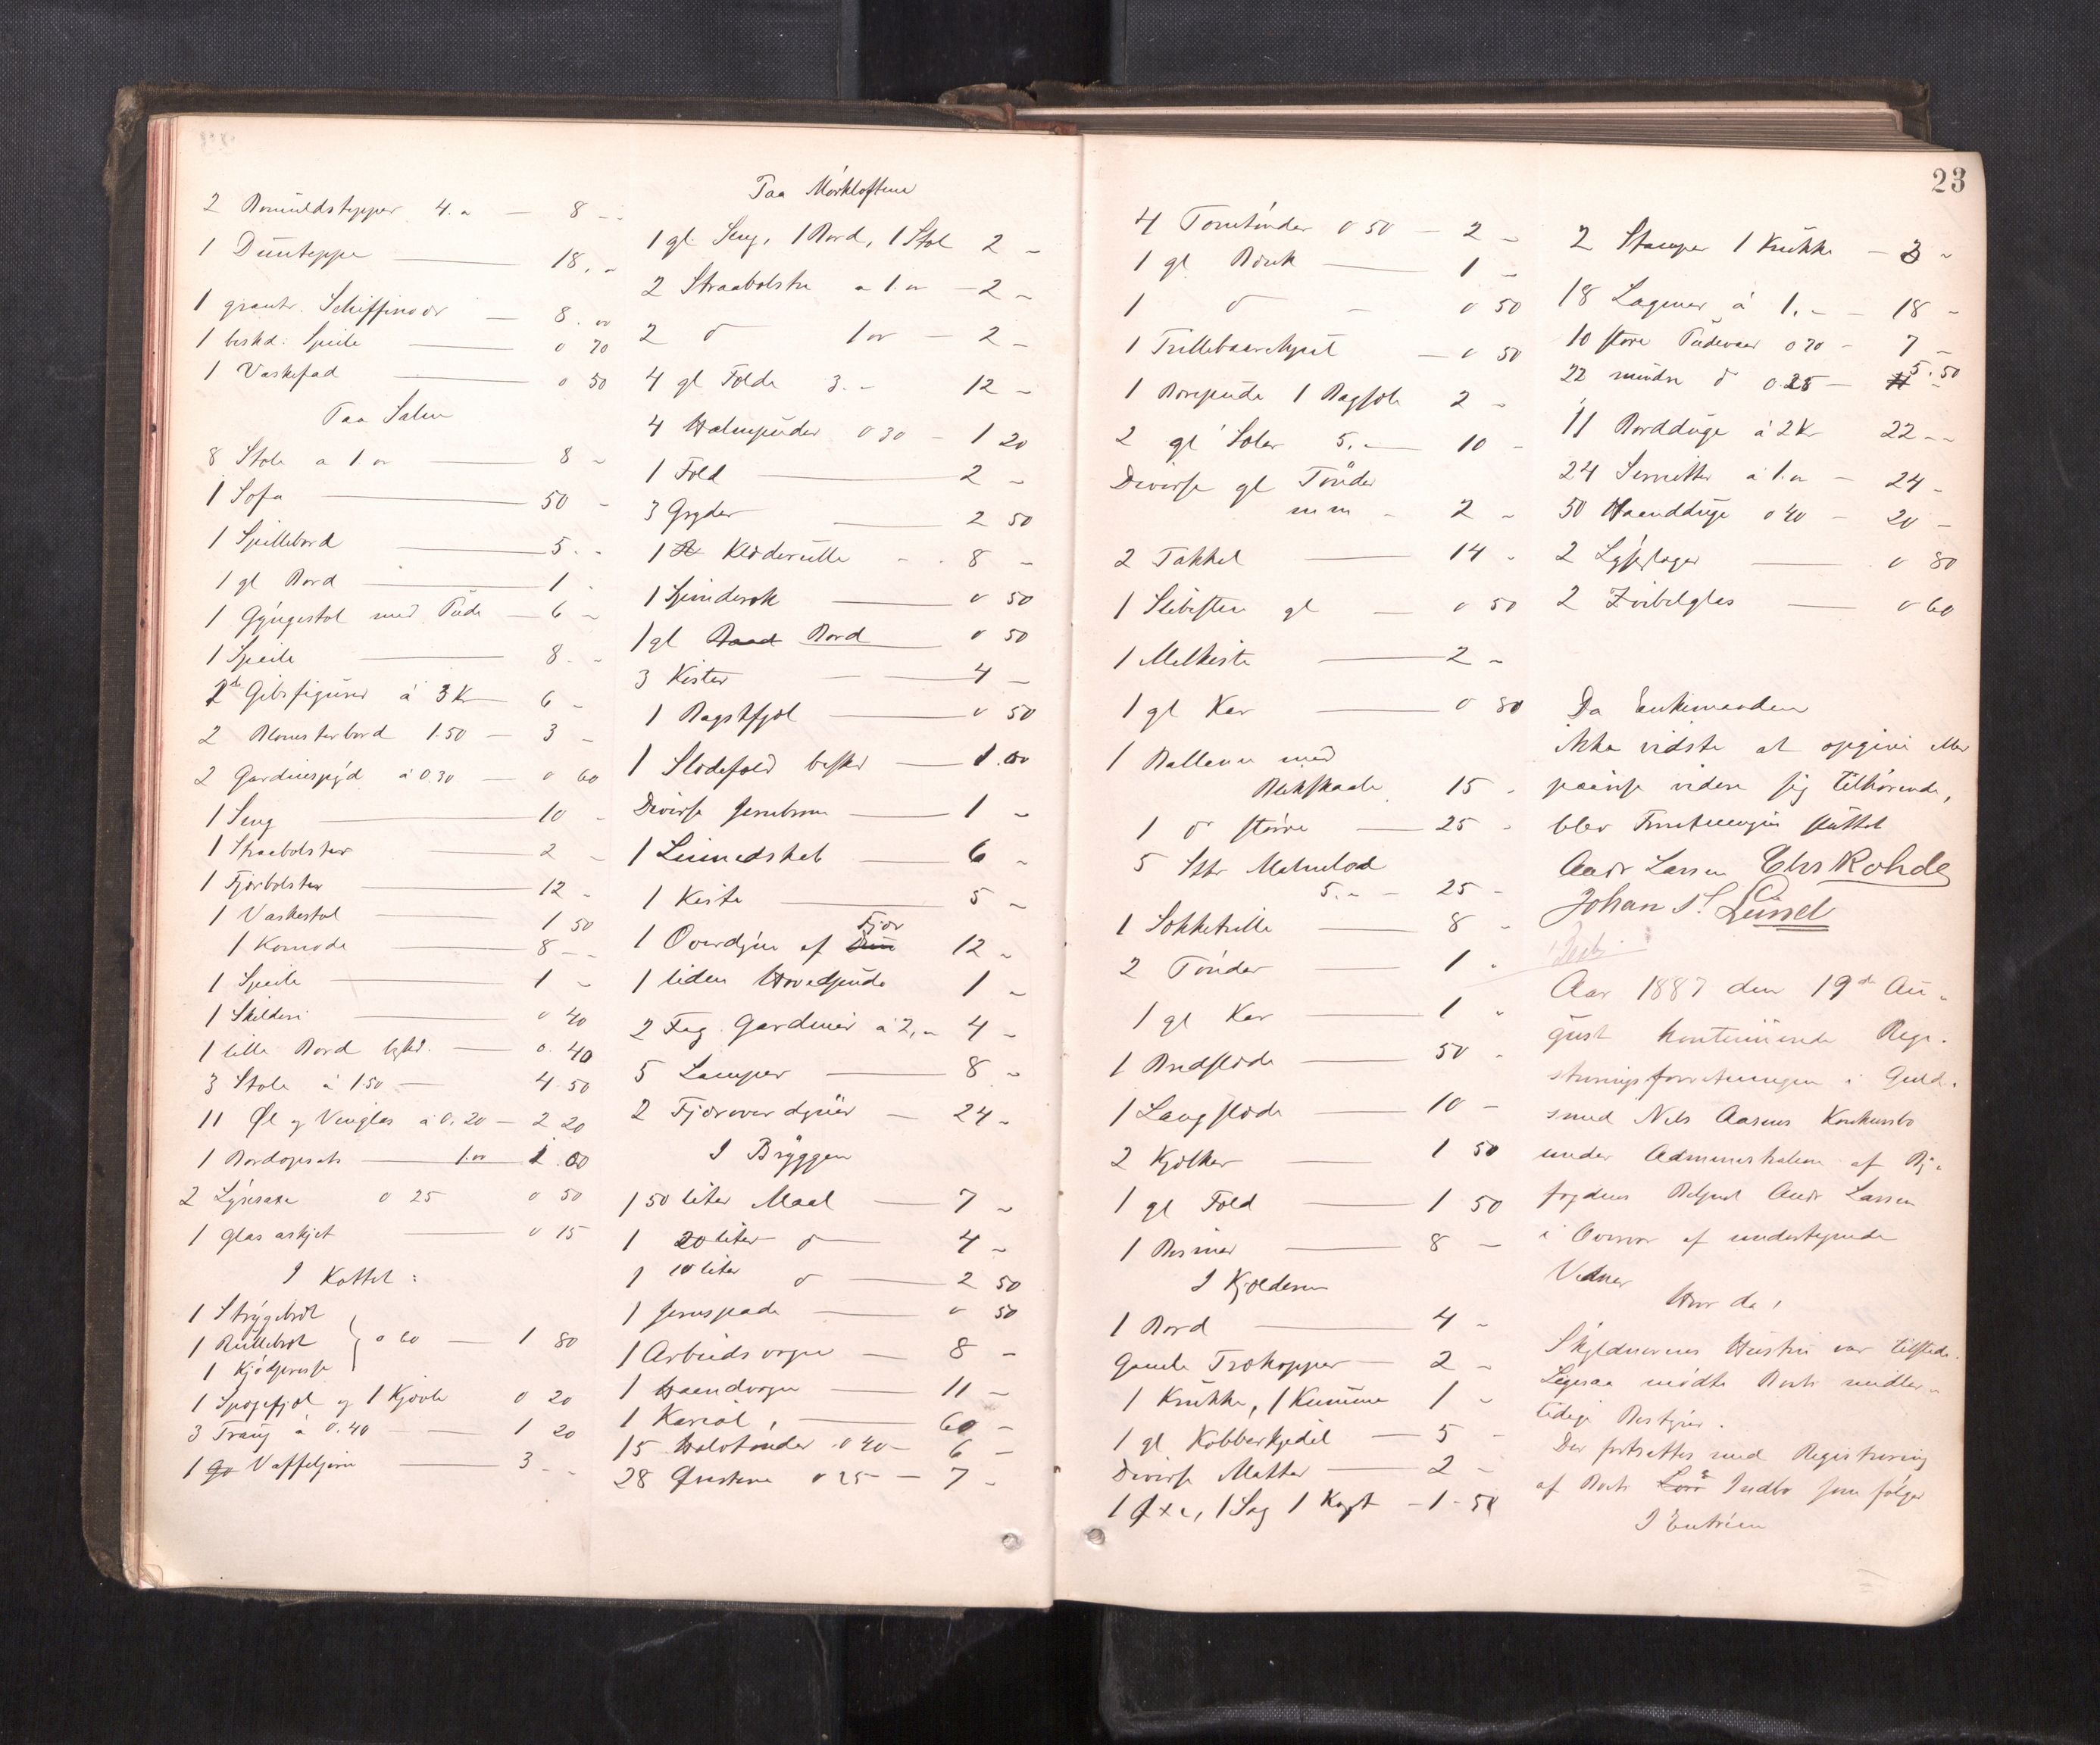 2 Bomuldstepper 4. " — 8 "
1 Dunteppe — 18. "
1 Schiffinoor — 8. "
1 beskd: Speile — 0 70
1 Vaskefad — 0 50
Paa Salen
8 Stole a 1. " — 8 "
1 Sofa — 50 "
1 Spillebord — 5. "
1 gl Bord — 1 "
1 Gyngestol med Pude — 6 "
1 Speile — 8. "
2 Gibsfigurer à 3 Kr — 6 "
2 Blomsterbord 1.50 — 3 "
2 Gardinspyd à 0.30 — 0 60
1 Seng — 10 "
1 Straabolster — 2 "
1 Fjærbolster — 12 "
1 Vaskestol — 1 50
1 Komode — 8 "
1 Speile — 1 "
1 Skilderi — 0 40
1 lille Bord — 0. 40
3 Stole à 1.50 — 4 50
11 Øl og Vinglas à 0,20 — 2 20
1 Bordopsats — 1. " 1.00
2 Lysesaxe 0 25 0 50
1 glas askjet — 0 15
I Kottet:
1 Strygebræt
1 Rullebræt } a 60 — 1 80
1 Kjødpresse
1 Spegefjøl og 1 Kjævle 0 20
3 Traug à 0.40 — 1 20
1 Vaffeljern — 3 "
Paa Mørkloftene
1 gl Seng, 1 Bord, 1 Stol 2 "
2 Straabolstre a 1. " — 2 "
2 do 1 " — 2 "
4 gl Felde 3. " 12 "
4 Halmpuder 0 30 — 1 20
1 Feld — 2 "
3 Gryder — 2 50
1 Klæderulle — 8 "
1 Spinderok — 0 50
1 gl Bord — 0 50
3 Kister — 4 "
1 Bagstfjøl — 0 50
1 Slædefeld beskd — 1.00
Diverse — 1 "
1 — 6 "
1 Kiste — 5 "
1 Overdyne af Fjær 12 "
1 liden Hovedpude 1 "
2 Fag Gardiner à 2, " 4 "
5 Lamper — 8 "
2 Fjæroverdyner — 24 "
I Bryggen
1 50 liter Maal — 7 "
1 20 liter do — 4 "
1 10 liter do — 2 50
1 Jernspade — 0 50
1 Arbeidsvogn — 8 "
1 Haandvogn — 11 "
1 Kariol, — 60 "
15 Halvtønder 0 40 — 6 "
28 0 25 — 7 "
23
4 Tomtønder 0 50 — 2 "
1 gl Bænk — 1 "
1 do — 0 50
1 Trillebaarehjul — 0 50
1 1 2 "
2 gl Seler 5. " 10 "
Diverse gl Tønder
m m — 2 "
2 Takkel — 14 "
1 Slibesten gl — 0 50
1 Melkiste — 2 "
1 gl Kar — 0 80
1 med
15 "
1 do større — 25 "
5 Stkr
5. " 25 "
1 8 "
2 Tønder — 1 "
1 gl Kar — 1 "
1 Bredslæde — 50 "
1 Langslæde — 10 "
2 Kjælker — 1 50
1 gl Feld — 1 50
1 Bismer — 8 "
I Kjælderen
1 Bord — 4 "
Gamle Trækopper — 2 "
1 Krukke, 1 Kumme 1 "
1 gl Kobberkjedel — 5 "
Diverse Matter — 2 "
1 Øxe, 1 Sag 1 — 1 50
2 Stamper 1 Krukke — 3 "
18 Lagener à 1. " — 18 "
10 store Pudevaar 0 70 — 7 "
22 mindre do 0.25 — 5.50
11 Bordduge à 2 Kr 22 "
24 Servietter à 1. " — 24 "
50 Haandduge 0 40 — 20 "
2 — 0 80
2 Zvibelglas — 0 60
Da Enkemanden
ikke vidste at opgive eller
paavise videre sig tilhørende,
blev Forretningen sluttet
Andr Larsen Chr Rohde
Johan S. Lund
Aar 1887 den 19de Au-
gust kontinuerede Regi-
streringsforretningen i Guld-
smed Nils Aasens Konkursbo
under Administration af By-
fogdens Betjent Andr Larsen
i Overvær af undertegnede
Vidner
Hvor da,
Skyldnerens Hustru var tilstede.
Ligesaa mødte Boets midler-
tidige Bestyrer.
Der fortsattes med Registrering
af Boets Indbo som følger
I Entréen